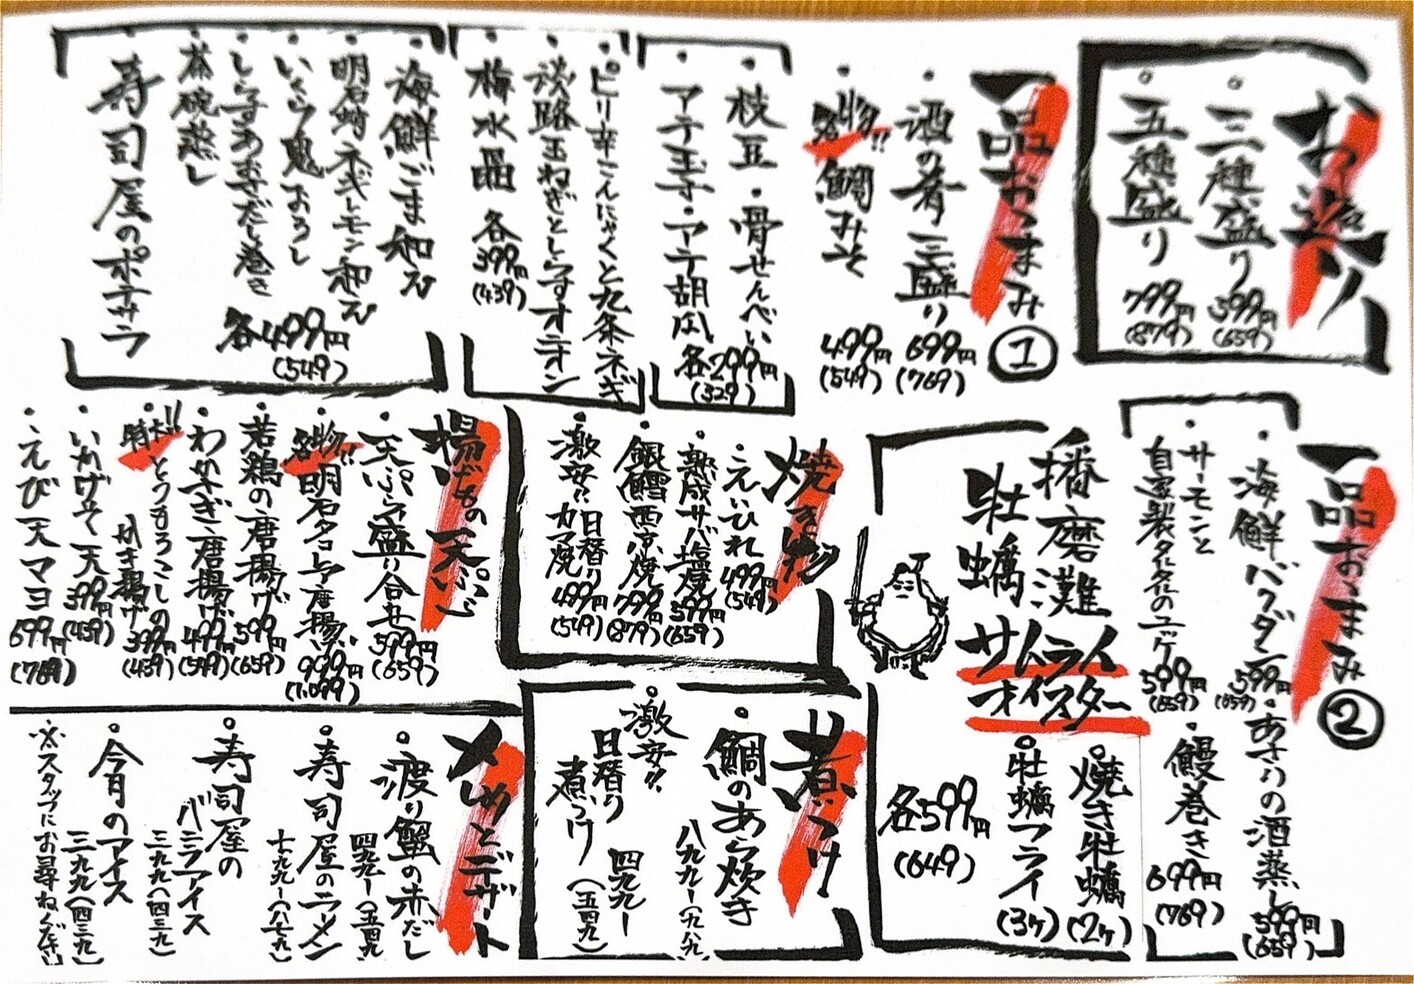 お造り
・三種盛り 599円(659)
・五種盛り 799円(879)
一品おつまみ①
・酒の肴三盛り 699円(769)
・名物!!鯛みそ 499円(549)
・枝豆・骨せんべい
・アテ玉子・アテ胡瓜 各299円(329)
・ピリ辛こんにゃくと九条ネギ
・淡路玉ねぎとしらすオニオン
・梅水晶 各399円(439)
・海鮮ごま和え
・明石蛸ネギレモン和え
・いくら鬼おろし
・しらすあおさだし巻き
・茶碗蒸し
・寿司屋のポテサラ
各499円(549)
一品おつまみ②
・海鮮バクダン 599円(659)
・あさりの酒蒸し 599円(659)
・サーモンと
自家製タルタルのユッケ 599円(659)
・鰻巻き 699円(769)
播磨灘
牡蠣
サムライ
オイスター
・焼き牡蠣(2ケ)
・牡蠣フライ(3ケ)
各599円(649)
焼き物
・えいひれ 499円(549)
・熟成サバ塩焼 599円(659)
・銀鱈西京焼 799円(879)
・激安!!日替りカマ焼 499円(549)
煮つけ
・鯛のあら炊き 八九九ー(九八九)
・激安!!
日替り
煮つけ 四九九ー(五四九)
揚げもの天ぷら
・天ぷら盛り合せ 599円(659)
・名物!!明石タコレア唐揚げ 999円(1,099)
・若鶏の唐揚げ 599円(659)
・わかさぎ唐揚げ 499円(549)
・特大!!とうもろこしの
かき揚げ 399円(439)
・いかげそ天 399円(439)
・えび天マヨ 699円(769)
〆ものとデザート
・渡り蟹の赤だし 四九九ー(五四九)
・寿司屋のラーメン 七九九ー(八七九)
・寿司屋の
バニラアイス 三九九(四三九)
・今月のアイス 三九九(四三九)
※スタッフにお尋ねください